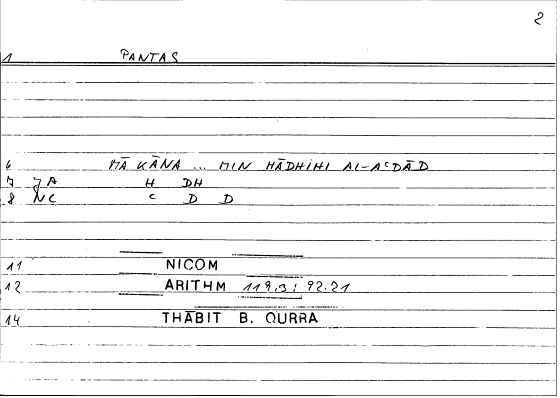 2
1 PANTAS
6 MĀ KĀNA ... MIN HĀDHIHI AL-AᶜDĀD
7 JA H DH
8 NC C D D
11 NICOM
12 ARITHM 119.3; 92.21
14 THĀBIT B. QURRA